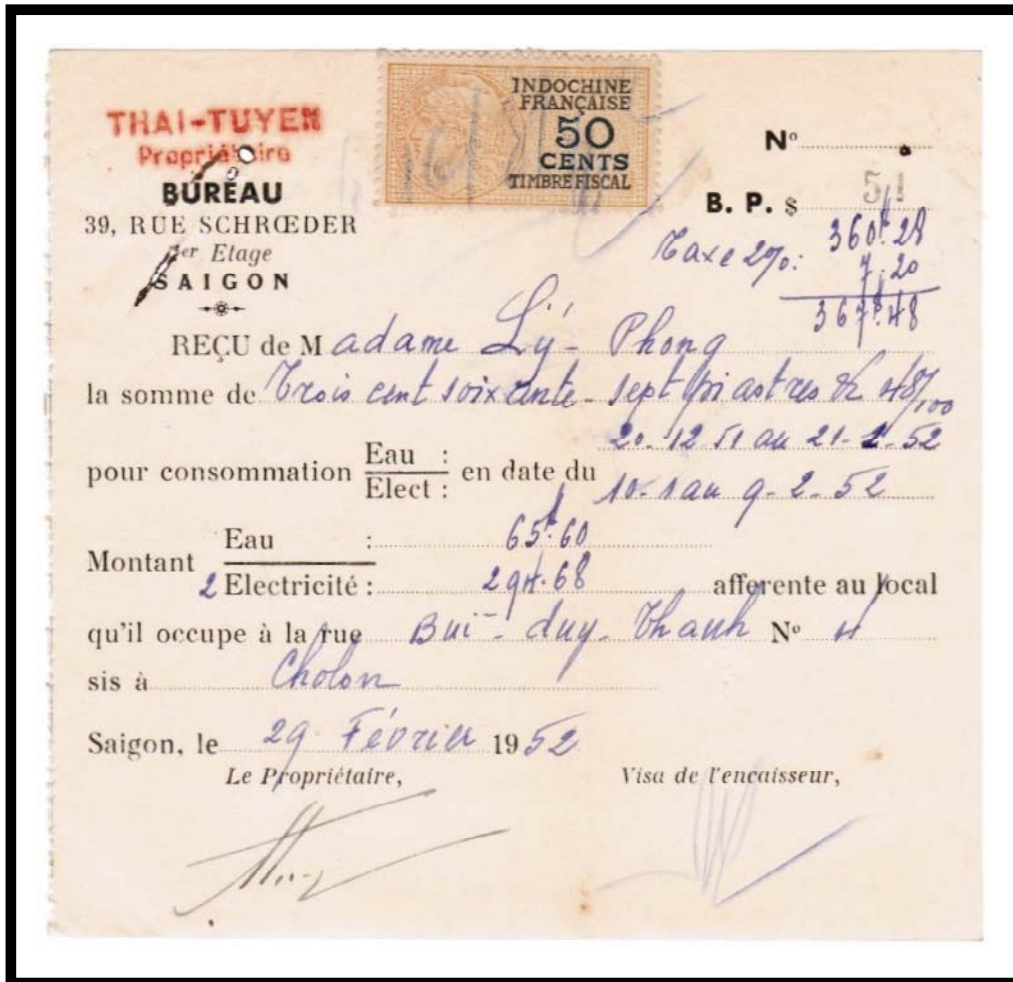 THAI-TUYEN
Propriétaire
BUREAU
39, RUE SCHRŒDER
1er Etage
SAIGON
INDOCHINE
FRANÇAISE
50
CENTS
TIMBRE FISCAL
Nº
51
B. P. $ 360$28
Taxe 2%: 7.20
367$48
REÇU de Madame Lý- Phong
la somme de Trois cent soixante-sept piastres & 48/100
20-12-51 au 21-2-52
pour consommation Eau : Elect : en date du
10-1 au 9-2-52
Eau : 65$60
Montant
2 Electricité : 294.68 afferente au local
qu'il occupe à la rue Bui-duy-Thanh Nº 4
sis à Cholon
Saigon, le 29 Février 1952
Le Propriétaire, Visa de l'encaisseur,